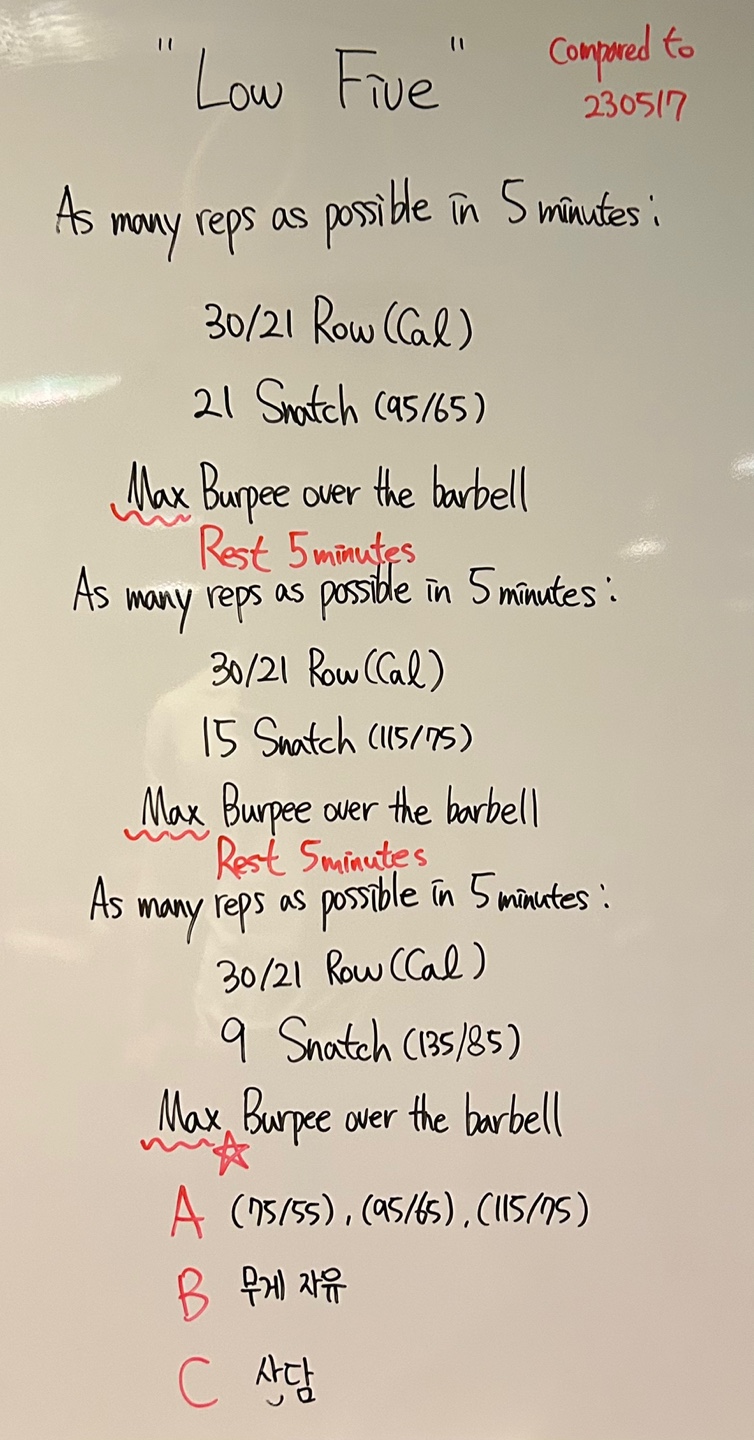 "Low Five"
Compared to
230517
As many reps as possible in 5 minutes:
30/21 Row (Cal)
21 Snatch (95/65)
Max Burpee over the barbell
Rest 5 minutes
As many reps as possible in 5 minutes:
30/21 Row (Cal)
15 Snatch (115/75)
Max Burpee over the barbell
Rest 5 minutes
As many reps as possible in 5 minutes:
30/21 Row (Cal)
9 Snatch (135/85)
Max Burpee over the barbell
A (75/55), (95/65), (115/75)
B 무게 자유
C 상담